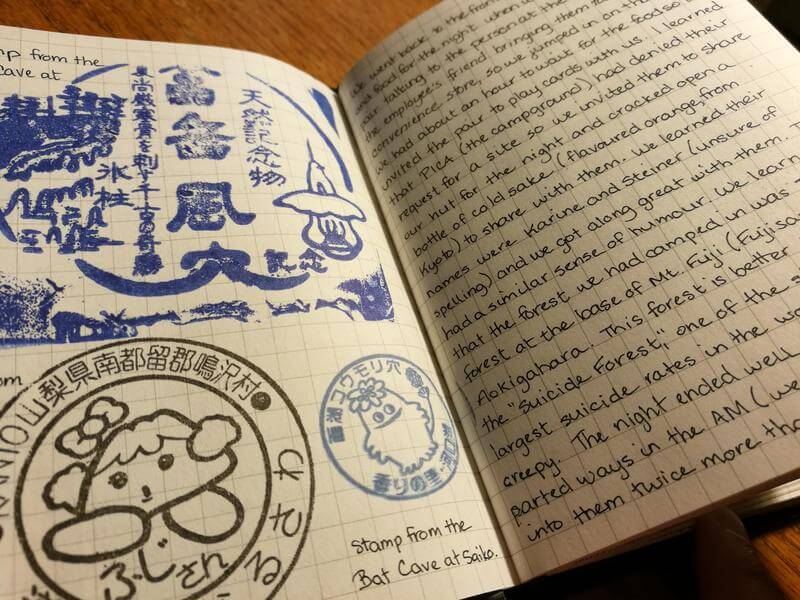 stamp from the
Cave at
天然記念物
富岳風穴
氷柱
山梨県南都留郡鳴沢村
ふじさん
ふるさわ
西湖コウモリ穴
香りの里
stamp from the
Bat Cave at Saiko.
we went back to the front
and food for the night when
our talking to the person at the
the employee's friend bringing them
convenience store, so we jumped in on th
we had about an hour to wait for the food so
invited the pair to play cards with us. I learned
that PICA (the campground) had denied their
request for a site so we invited them to share
our hut for the night and cracked open a
bottle of cold sake (flavoured orange, from
Kyoto) to share with them. We learned their
names were Karine and Steiner (unsure of
spelling) and we got along great with them. T
had a similar sense of humour. We learn
that the forest we had camped in was
forest at the base of Mt. Fuji (Fuji sa
Aokigahara. This forest is better
the "Suicide Forest," one of the
largest suicide rates in the wo
creepy. The night ended well
parted ways in the AM (we
into them twice more tha